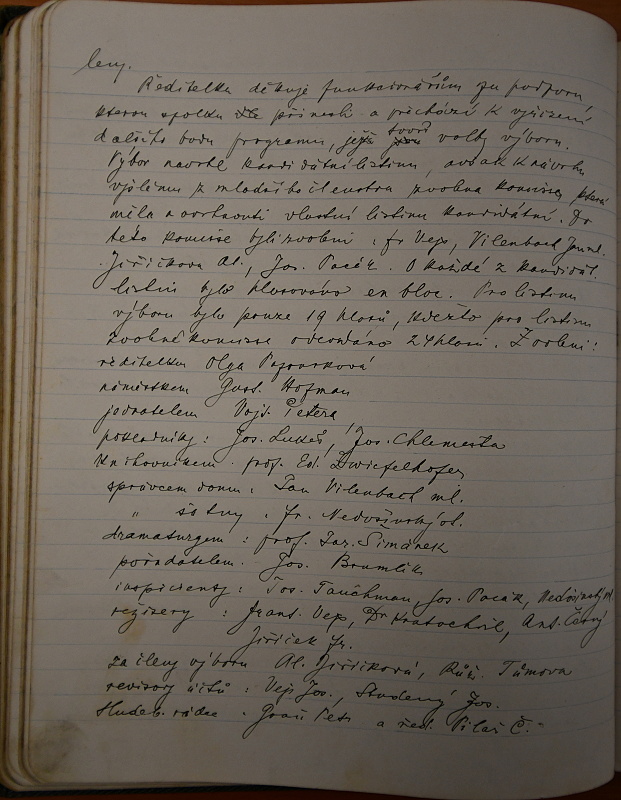 leny.
Ředitelka děkuje funkcionářům za podporu,
kterou spolku přinesli a přichází k vyřízení
dalšího bodu programu, jejž tvoří volby výboru.
Výbor navrhl kandidátní listinu, avšak k návrhu
z mladšího členstva zvolena komise, která
měla sestaviti vlastní listinu kandidátní. Do
této komise byli zvoleni: fr Vejs, Vilenbach
Jiřičkova Al., Jos. Pacák. O každé z kandidát.
listin bylo hlasováno en bloc. Pro listinu
výboru bylo pouze 19 hlasů, kdežto pro listinu
zvolené komisse odevzdáno 24 hlasů. Zvoleni:
ředitelkou Olga
náměstkem Gust. Hofman
jednatelem Vojt. Petera
pokladníky: Jos. Lukeš, Jos. Chlemešta
knihovníkem. prof. Ed. Zwiefelhofer
správcem domu. Jan Vilenbach ml.
" šatny. Fr. Nedvšínský st.
dramaturgem: prof. Jar. Šimánek
pořadatelem. Jos. Brumlik
inspicienty: Jos. Tauchman, Jos. Pacák,
režisery: Frant. Vejs, Dr Kratochvil, Ant. Černý
Jiříček fr.
za členy výboru Al. Jiřičková, Růž. Tůmova
revisory účtů: Vejs Jos., Studený Jos.
Hudeb. rádce. Petr a řed. Pilař Č.